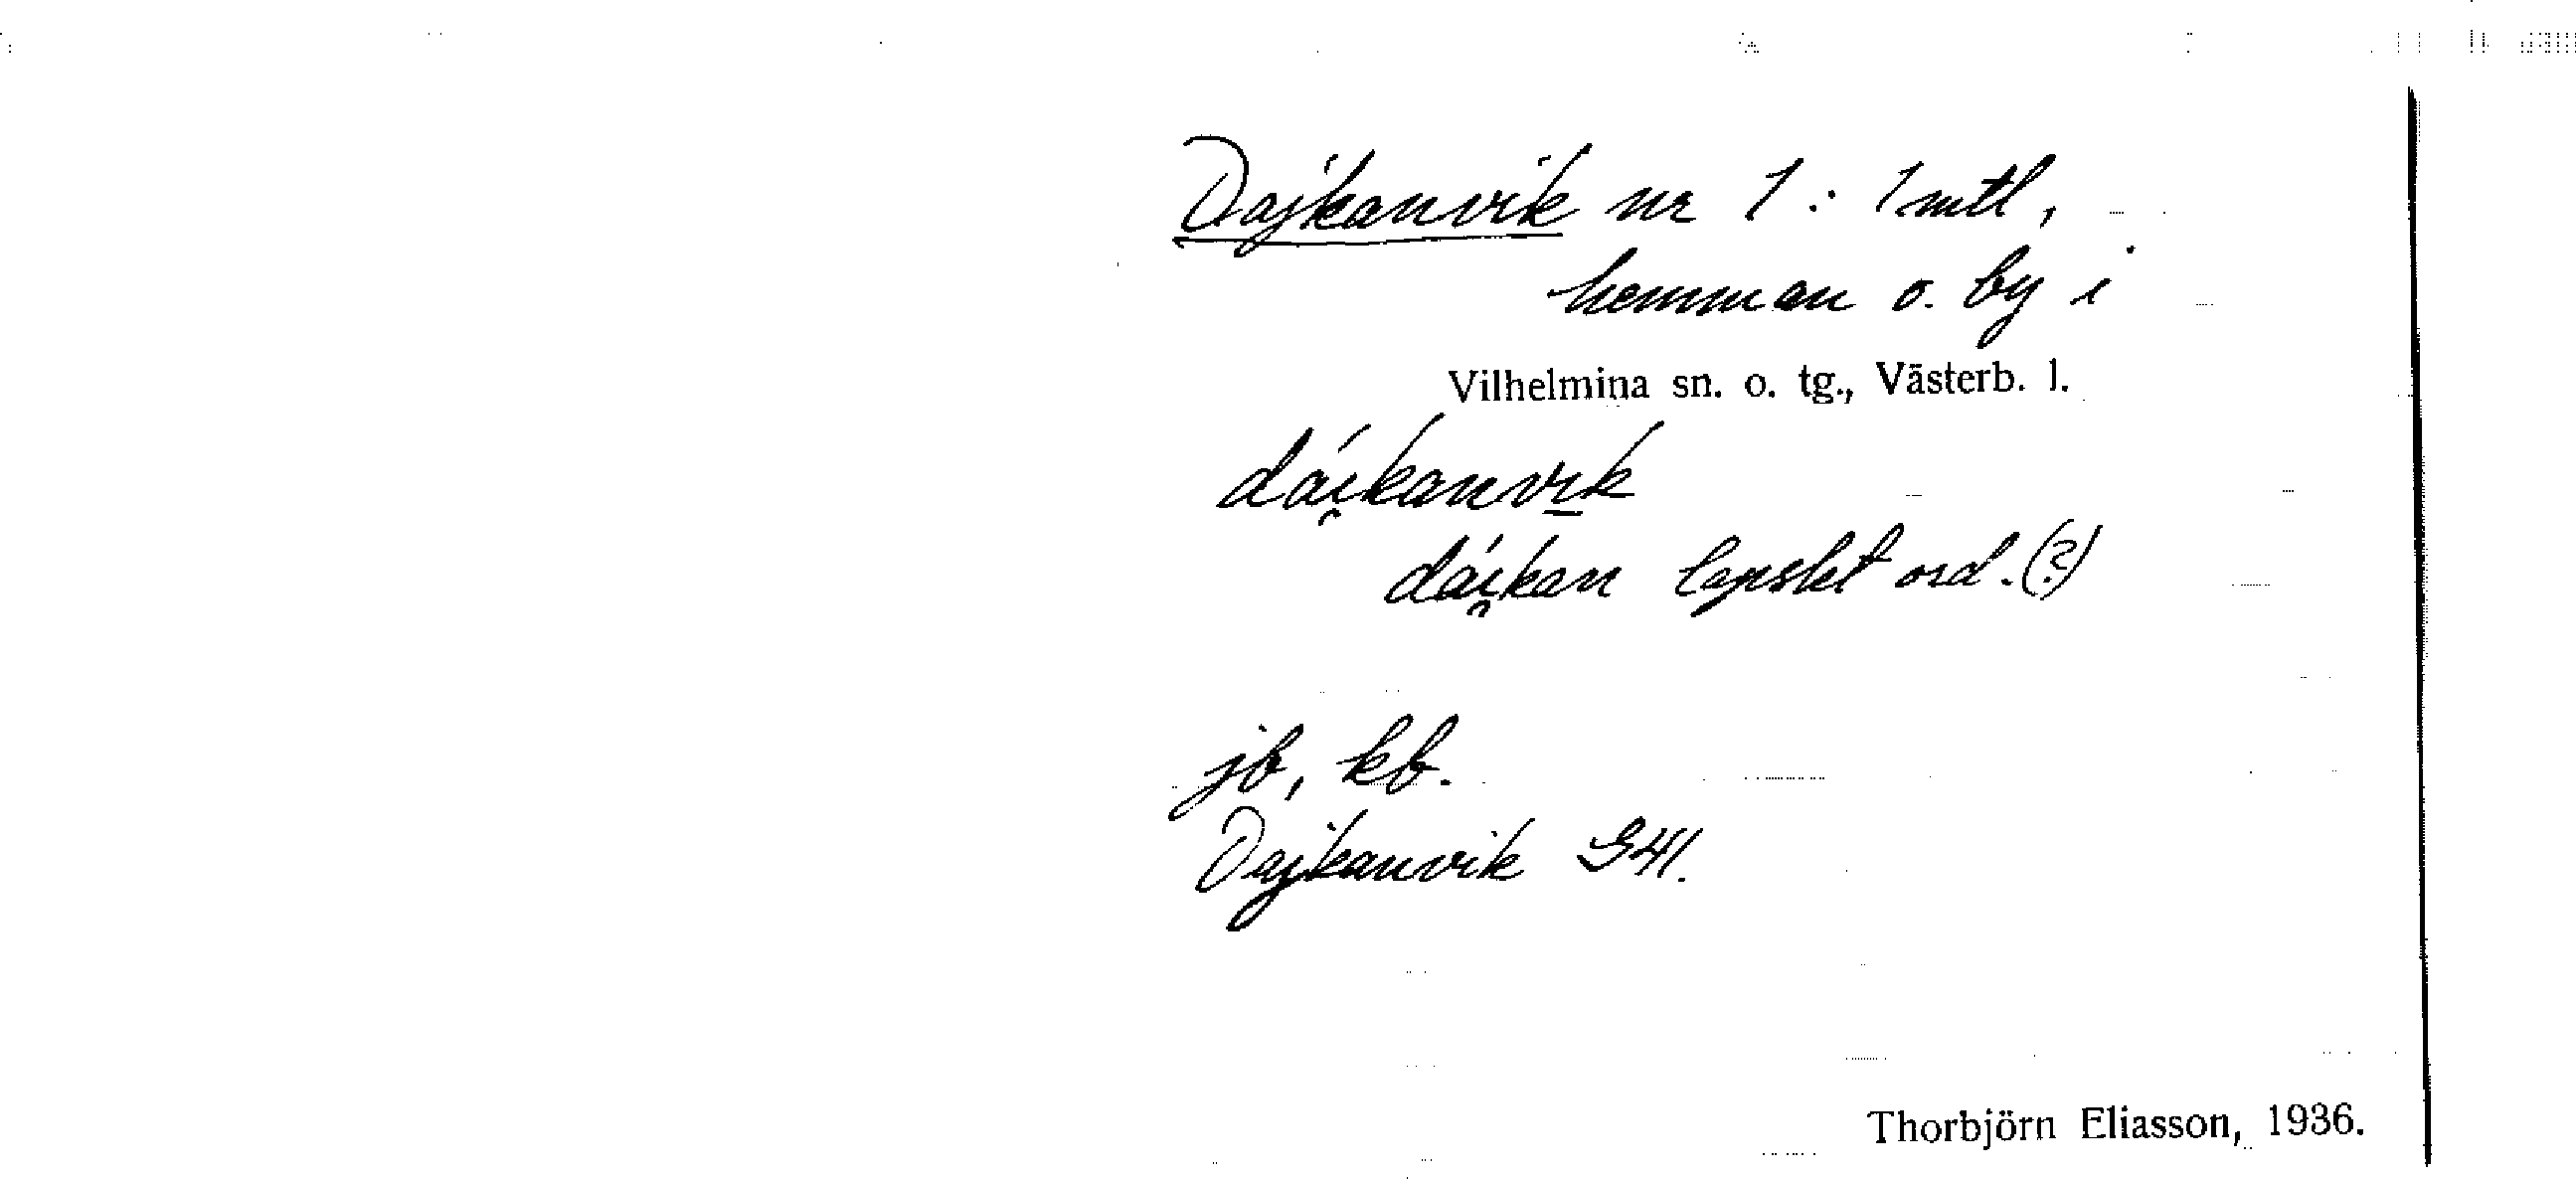 Dajkanvik nr 1 : 1 mtl,
hemman o. by i
Vilhelmina sn. o. tg., Västerb. l.
dái̯kanvi̱k
dái̯kan lapskt ord. (?)
jb, kb.
Dajkanvik G41.
Thorbjörn Eliasson, 1936.